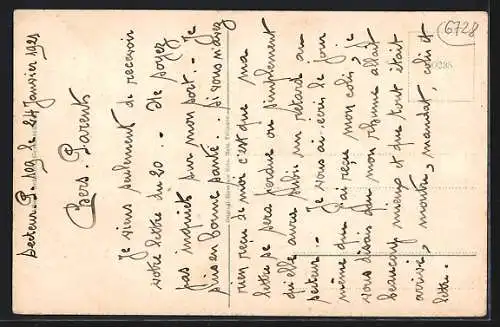 6728
Secteur P. 109 le 24 Janvier 1921
Chers Parents
Je viens seulement de recevoir
votre lettre du 20. - Ne soyez
pas inquiets sur mon sort. - Je
suis en bonne santé. . Si vous n'avez
rien reçu de moi c'est que ma
lettre se sera perdue ou simplement
qu'elle aura subi un retard au
secteur. - Je vous ai écrit le jour
même que j'ai reçu mon colis, je
vous disais que mon rhume allait
beaucoup mieux et que tout était
arrivé, montre, mandat, colis et
lettre. -